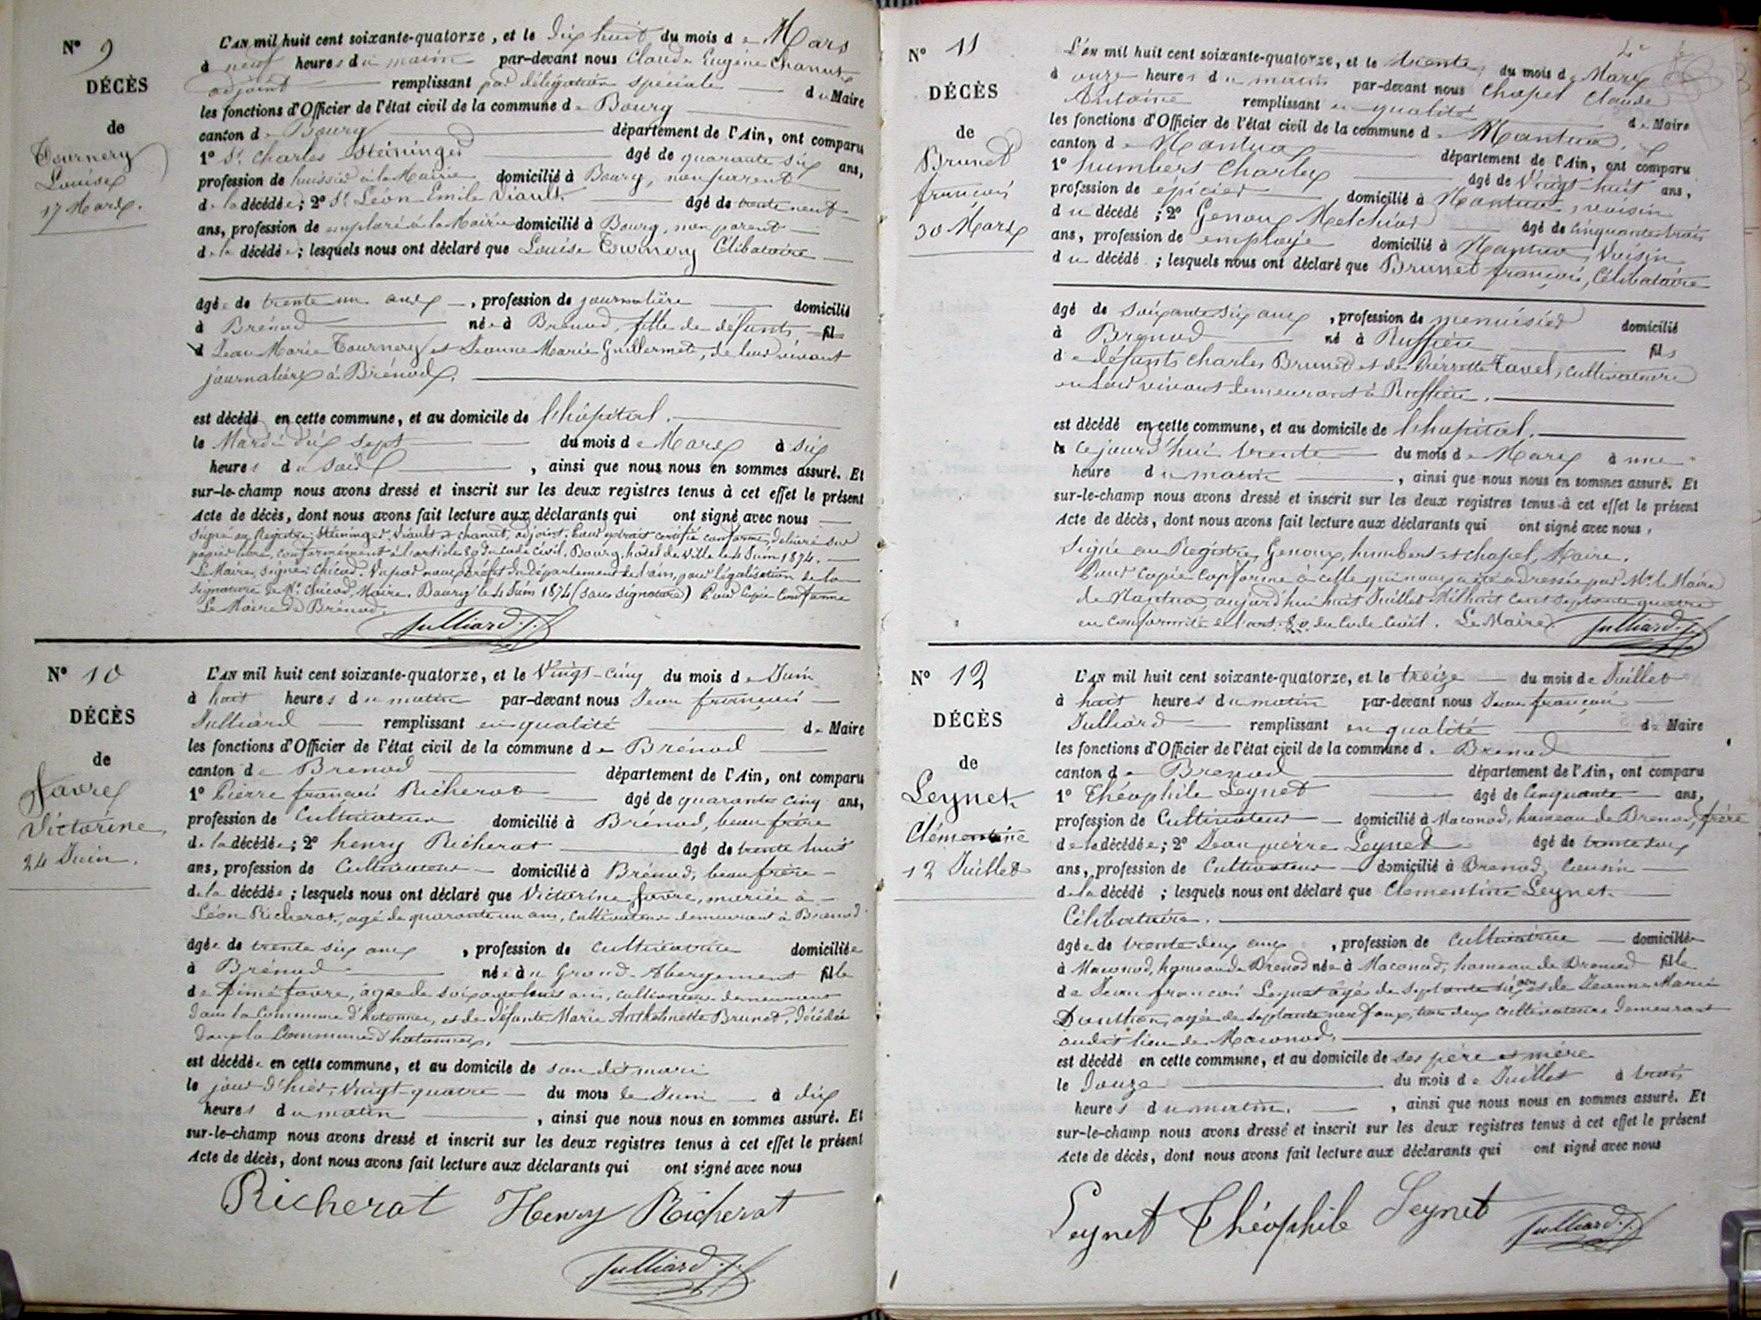 N° 9
DÉCÈS
de
Tournery
Louise
17 Mars.
L'AN mil huit cent soixante-quatorze, et le dix huit du mois de Mars
à neuf heures du matin par-devant nous Claude Eugène Chanut
adjoint remplissant par délégation spéciale du Maire
les fonctions d'Officier de l'état civil de la commune de Bourg
canton de Bourg département de l'Ain, ont comparu
1° Sr. Charles Steininger âgé de quarante six ans,
profession de huissier à la Mairie domicilié à Bourg, non parent
de la décédée; 2° Sr Léon Emile Viault âgé de trente neuf
ans, profession de employé à la Mairie domicilié à Bourg, non parent
de la décédée; lesquels nous ont déclaré que Louise Tournery Célibataire
âgée de trente un ans, profession de journalière domicilié
à Brénod née à Brénod, fille de défunts fil
d Jean Marie Tournery et Jeanne Marie Guillermet, de leur vivant
journaliers à Brénod.
est décédé en cette commune, et au domicile de l'hôpital.
le Mardi dix sept du mois de Mars à six
heures du soir, ainsi que nous nous en sommes assuré. Et
sur-le-champ nous avons dressé et inscrit sur les deux registres tenus à cet effet le présent
Acte de décès, dont nous avons fait lecture aux déclarants qui ont signé avec nous
Signé au Registre, Steininger, Viault et Chanut, adjoint. Pour extrait certifié conforme, délivré sur
papier libre, conformément à l'article 80 du Code civil, Bourg, hôtel de Ville le 4 Juin 1874.
Le Maire, signé: Chicod. Vu par nous Préfet du département de l'ain, pour légalisation de la
signature de Mr. Chicod, Maire. Bourg le 4 Juin 1874 (sans signature) Pour Copie Conforme
Le Maire de Brénod.
Julliard. J. f.
N° 10
DÉCÈS
de
Favre
Victorine,
24 Juin.
L'AN mil huit cent soixante-quatorze, et le Vingt-cinq du mois de Juin
à huit heures du matin par-devant nous Jean françois
Julliard remplissant en qualité de Maire
les fonctions d'Officier de l'état civil de la commune de Brénod
canton de Brenod département de l'Ain, ont comparu
1° Pierre françois Richerot âgé de quarante cinq ans,
profession de Cultivateur domicilié à Brénod, beau frère
de la décédée; 2° henry Richerot âgé de trente huit
ans, profession de Cultivateur domicilié à Brénod, beau frère
de la décédée; lesquels nous ont déclaré que Victorine favre, mariée à
Léon Richerot, agé de quarante un ans, cultivateur demeurant à Brenod
âgée de trente six ans, profession de cultivatrice domiciliée
à Brénod née à u Grand-Abergement fille
de Aimé favre, âgé de soixante huit ans, cultivateur demeurant
dans la Commune d'hotonnes, et de défunte Marie Anthelmette Brunet, décédée
dans la Commune d'hotonnes.
est décédée en cette commune, et au domicile de son dit mari
le jour d'hier, vingt-quatre du mois de Juin à dix
heures du matin, ainsi que nous nous en sommes assuré. Et
sur-le-champ nous avons dressé et inscrit sur les deux registres tenus à cet effet le présent
Acte de décès, dont nous avons fait lecture aux déclarants qui ont signé avec nous
Richerot Henry Richerot
Julliard. J. f.
N° 11
DÉCÈS
de
Brunet
françois
30 Mars
L'AN mil huit cent soixante-quatorze, et le trente, du mois de Mars
à onze heures du matin par-devant nous Chapel Claude
Antoine remplissant en qualité de Maire
les fonctions d'Officier de l'état civil de la commune de Nantua.
canton de Nantua département de l'Ain, ont comparu
1° humbert Charles âgé de Vingt huit ans,
profession de épicier domicilié à Nantua, voisin
du décédé; 2° Genoux Melchior âgé de cinquante trois
ans, profession de employé domicilié à Nantua, Voisin
du décédé; lesquels nous ont déclaré que Brunet françois, Célibataire
âgé de soixante six ans, profession de menuisier domicilié
à Brénod né à Ruffieu fils
de défunts Charles Brunet et de Pierrette Tavel, cultivateurs
en leur vivant demeurant à Ruffieu.
est décédé en cette commune, et au domicile de l'hôpital.
le cejourd'hui trente du mois de Mars à une
heure du matin, ainsi que nous nous en sommes assuré. Et
sur-le-champ nous avons dressé et inscrit sur les deux registres tenus à cet effet le présent
Acte de décès, dont nous avons fait lecture aux déclarants qui ont signé avec nous,
Signé au Registre, Genoux, humbert et chapel, Maire.
Pour Copie Conforme à celle qui nous a été adressée par Mr. le Maire
de Nantua, aujourd'hui huit Juillet Mil huit cent septante quatre
en conformité de l'art. 80 du Code Civil. Le Maire,
Julliard. J. f.
N° 12
DÉCÈS
de
Leynet
Clémentine
12 Juillet
L'AN mil huit cent soixante-quatorze, et le treize du mois de Juillet
à huit heures du matin par-devant nous Jean françois
Julliard remplissant en qualité de Maire
les fonctions d'Officier de l'état civil de la commune de Brenod
canton de Brenod département de l'Ain, ont comparu
1° Théophile Leynet âgé de Cinquante ans,
profession de Cultivateur domicilié à Maconod, hameau de Brenod, frère
de la décédée; 2° Jean pierre Leynet âgé de trente deux
ans, profession de Cultivateur domicilié à Brenod, cousin
de la décédé; lesquels nous ont déclaré que Clémentine Leynet
Célibataire.
âgée de trente deux ans, profession de cultivatrice domiciliée
à Maconod, hameau de Brenod née à Maconod, hameau de Brenod fille
de Jean françois Leynet âgé de septante six ans et de Jeanne Marie
, agée de septante neuf ans, tous deux cultivateurs demeurant
audit lieu de Maconod.
est décédé en cette commune, et au domicile de ses père et mère
le douze du mois de Juillet à trois
heures du matin, ainsi que nous nous en sommes assuré. Et
sur-le-champ nous avons dressé et inscrit sur les deux registres tenus à cet effet le présent
Acte de décès, dont nous avons fait lecture aux déclarants qui ont signé avec nous
Leynet Théophile Leynet
Julliard. J. f.